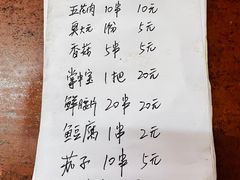 五花肉 10串 10元
臭大元 1份 5元
香菇 5串 5元
掌中宝 1把 20元
鲜腰片 20串 20元
鱼豆腐 1串 2元
茄子 10串 5元